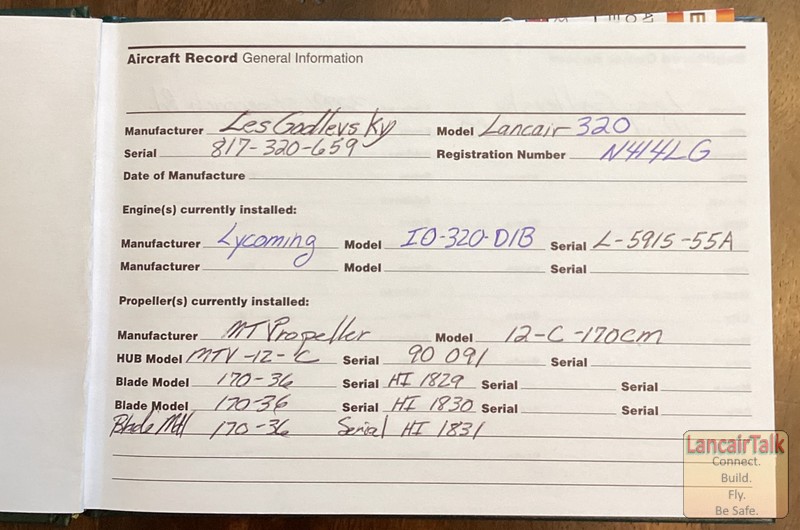 Aircraft Record General Information
Manufacturer Les Godlevsky Model Lancair 320
Serial 817-320-659 Registration Number N414LG
Date of Manufacture
Engine(s) currently installed:
Manufacturer Lycoming Model IO-320-D1B Serial L-5915-55A
Manufacturer Model Serial
Propeller(s) currently installed:
Manufacturer MT Propeller Model 12-C-170cm
HUB Model MTV-12-C Serial 90 091 Serial
Blade Model 170-36 Serial HI 1829 Serial Serial
Blade Model 170-36 Serial HI 1830 Serial Serial
Blade Mdl 170-36 Serial HI 1831
LancairTalk
Connect.
Build.
Fly.
Be Safe.